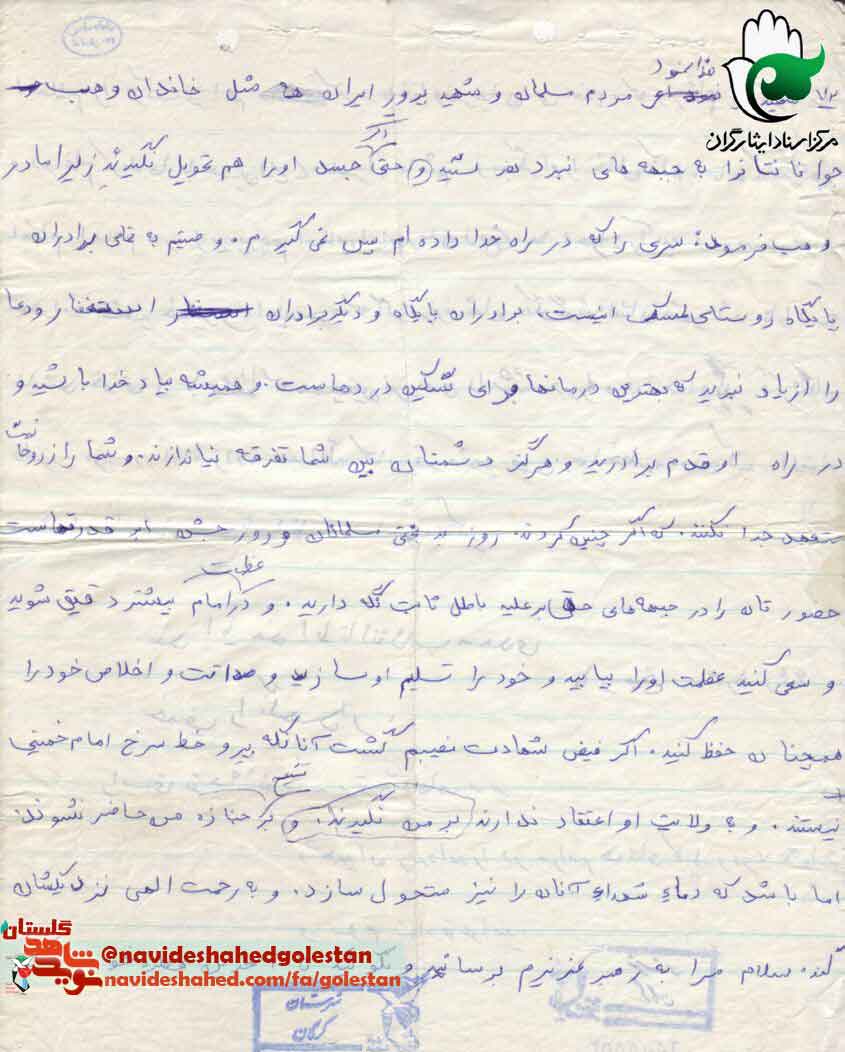 خداسنود
مردم مسلمان و شهید پرور ایران مثل خاندان وهب
اگر
جوانانتانرا به جبهه های نبرد بفرستید و حتی جسد او را هم تحویل نگیرید زیرا مادر
وهب فرمود: سری را که در راه خدا داده ام پس نمی گیرم. و وصیتم به تمامی برادران
پایگاه روستای اینست، برادران پایگاه و دیگر برادران استغفار و دعا
را از یاد نبرید که بهترین درمانها برای تسکین دردهاست. و همیشه بیاد خدا باشید و
در راه او قدم بردارید و هرگز دشمنان بین شما تفرقه نیاندازند. و شما را از روحانیت
متعهد جدا نکنند. که اگر چنین کردند. روز بدبختی مسلمانان و روز جشن ابرقدرتهاست
عظمت
حضورتان را در جبهه های حق بر علیه باطل ثابت نگه دارید. و در امام بیشتر دقیق شوید
و سعی کنید عظمت او را بیابید و خود را تسلیم او سازید و صداقت و اخلاص خود را
همچنان حفظ کنید. اگر فیض شهادت نصیبم گشت آنانکه پیرو خط سرخ امام خمینی
تشییع
نیستند. و به ولایت او اعتقاد ندارند بر من نگریند. و بر جنازه من حاضر نشوند.
اما باشد که دماء شهداء آنان را نیز متحول سازد. و به رحمت الهی نزدیکشان
کند. سلام مرا به رهبر عزیزم برسانید و بگوئید تا آخرین
مرکز اسناد ایثارگران
نوید شاهد گلستان
@navideshahedgolestan
navideshahed.com/fa/golestan